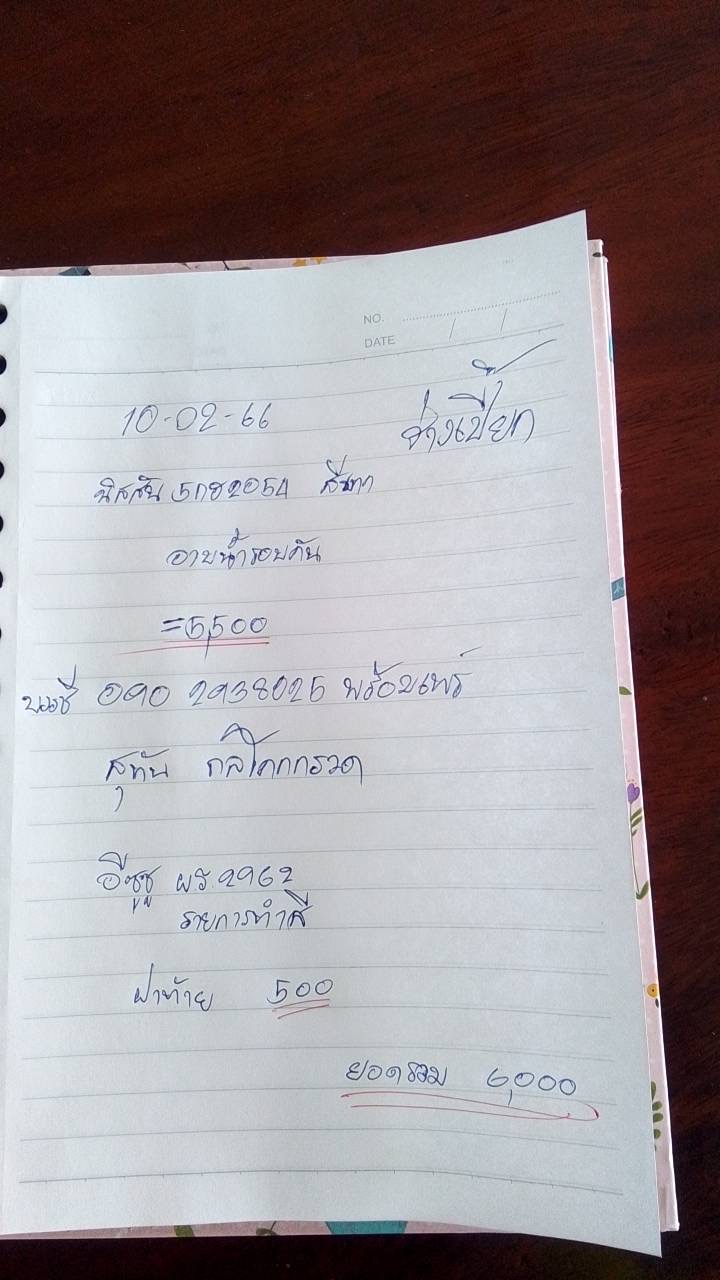 NO.
DATE / /
10-02-66
ช่างเปี๊ยก
นิสสัน 5กย2054 สีเทา
อาบน้ำรอบคัน
=5,500
บชชี 090 2938025 พร้อมเพร์
สุทัน กลโคกกรวด
อีซูซู ผร.2962
รายการทำสี
ฝาท้าย 500
ยอดรวม 6,000